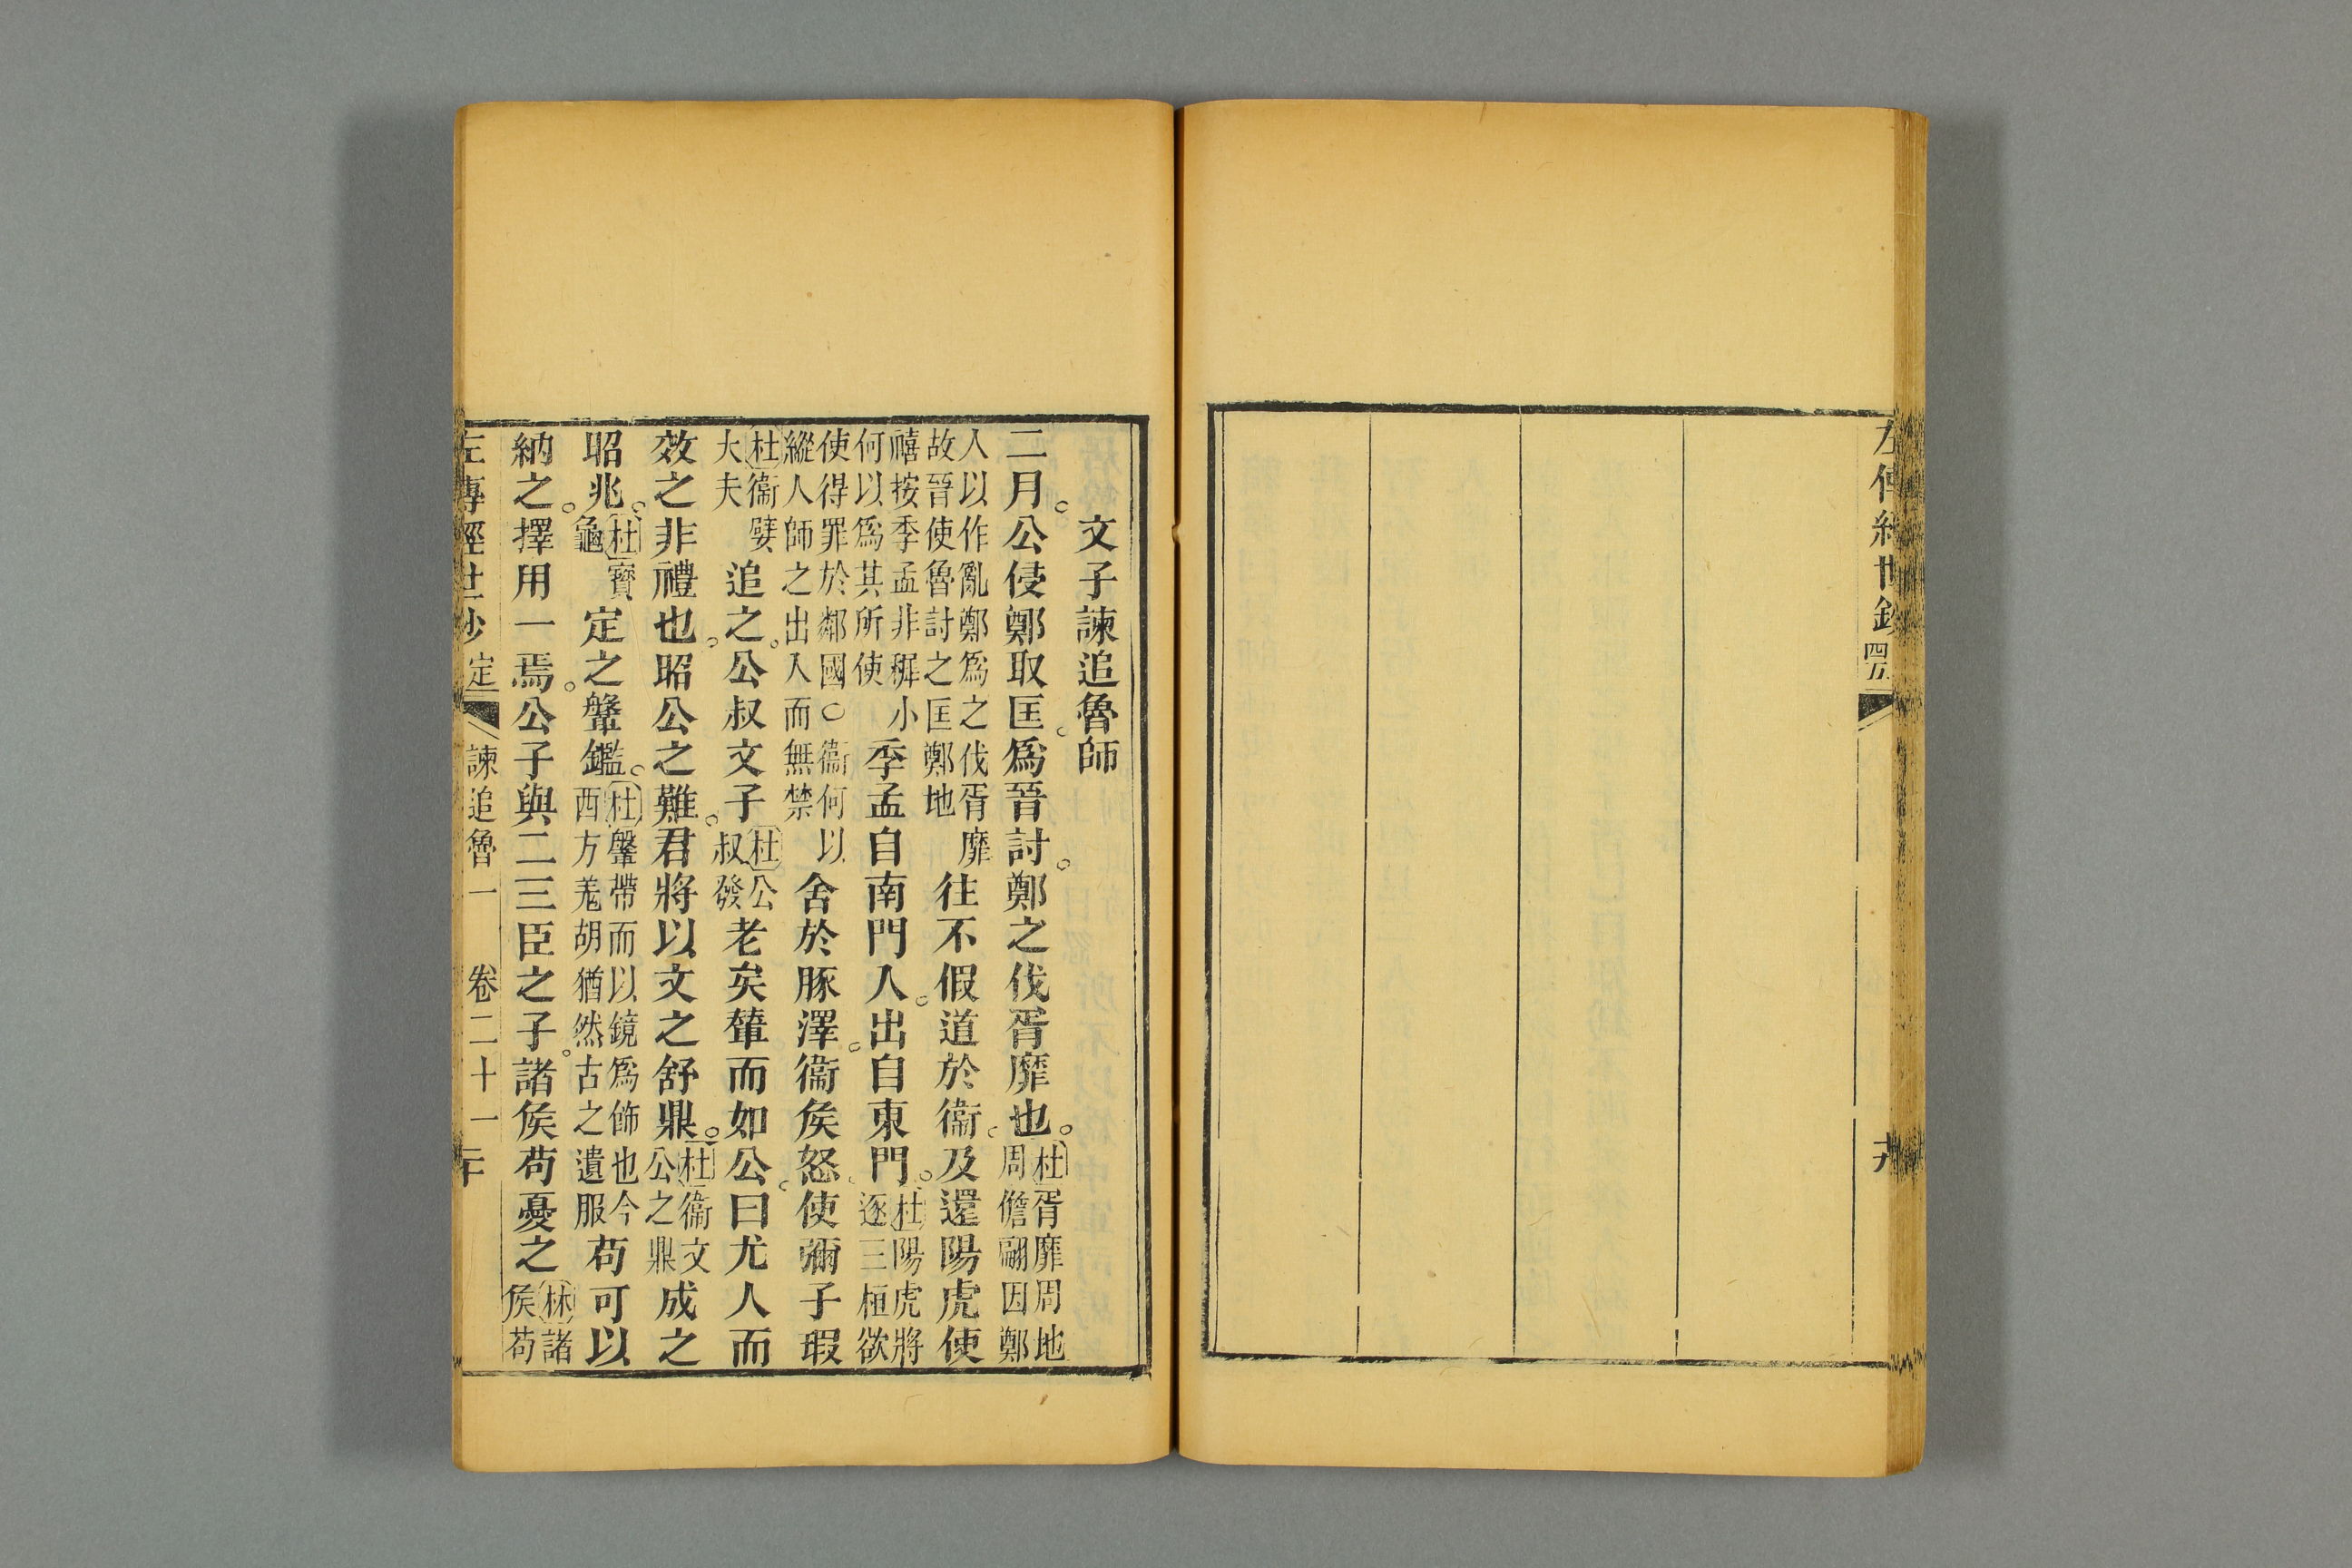 左傳經世鈔
文子諫追魯師
二月。公侵鄭取匡。爲晉討。鄭之伐胥靡也。杜胥靡周地周儋翩因鄭
人以作亂鄭爲之伐胥靡故晉使魯討之匡鄭地往不假道於衞。及還陽虎使
禧按季孟非穉小何以爲其所使季孟自南門入。出自東門。杜陽虎將逐三桓欲
使得罪於鄰國○衞何以縱人師之出入而無禁舍於豚澤。衞侯怒。使彌子瑕
杜衞嬖大夫追之。公叔文子杜公叔發老矣輦而如公。曰尤人而
效之非禮也。昭公之難。君將以文之舒鼎。杜衞文公之鼎成之
昭兆。杜寶龜定之鞶鑑。杜鞶帶而以鏡爲飾也今西方羌胡猶然古之遺服苟可以
納之。擇用一焉。公子與二三臣之子。諸侯苟憂之林諸侯苟
左傳經世鈔 定 諫追魯一 卷二十一 二十